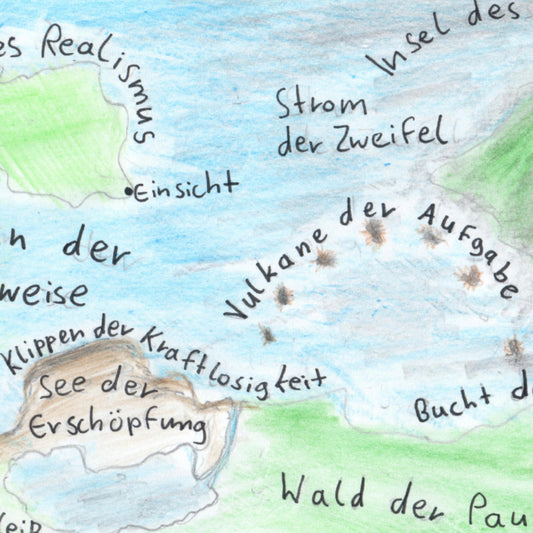 es Realismus
Insel des
Strom
der Zweifel
Einsicht
n der
weise
Vulkane der Aufgabe
Klippen der Kraftlosigkeit
See der
Erschöpfung
Bucht d
Wald der Pau